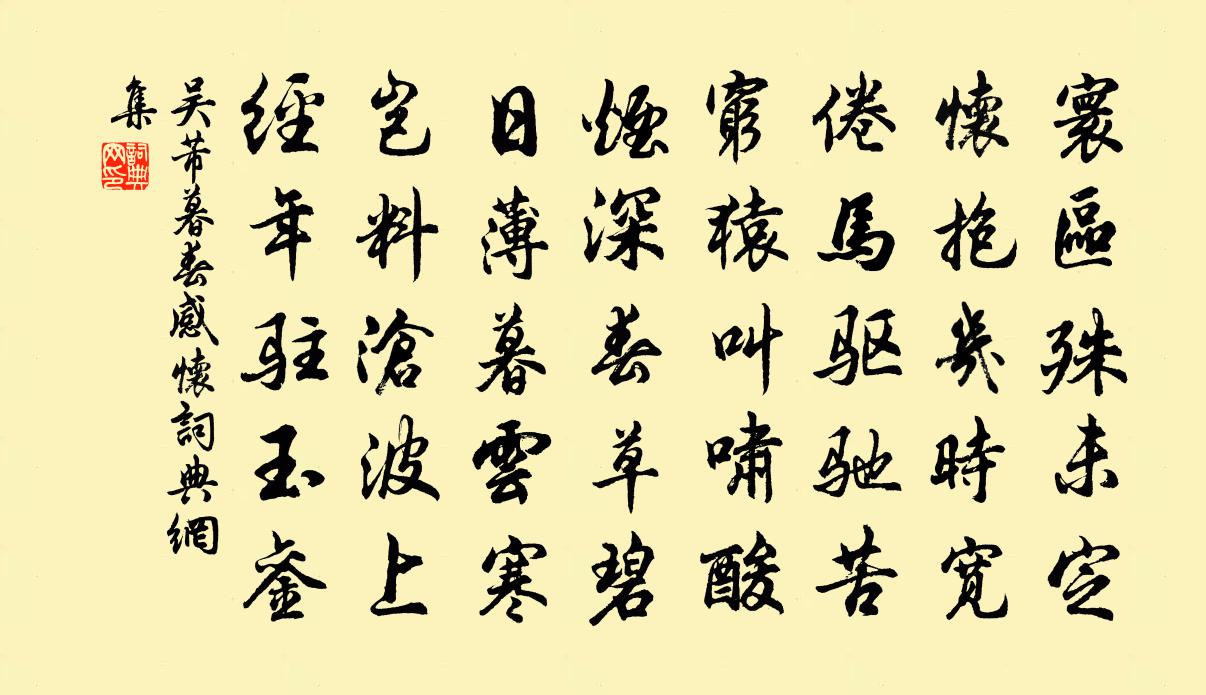 寰區殊未定
懷抱幾時寬
倦馬驱驰苦
窮猿叫嘯酸
煙深春草碧
日薄暮雲寒
岂料滄波上
經年駐玉銮
吳芾暮春感懷詞典網
集
詞典
网印